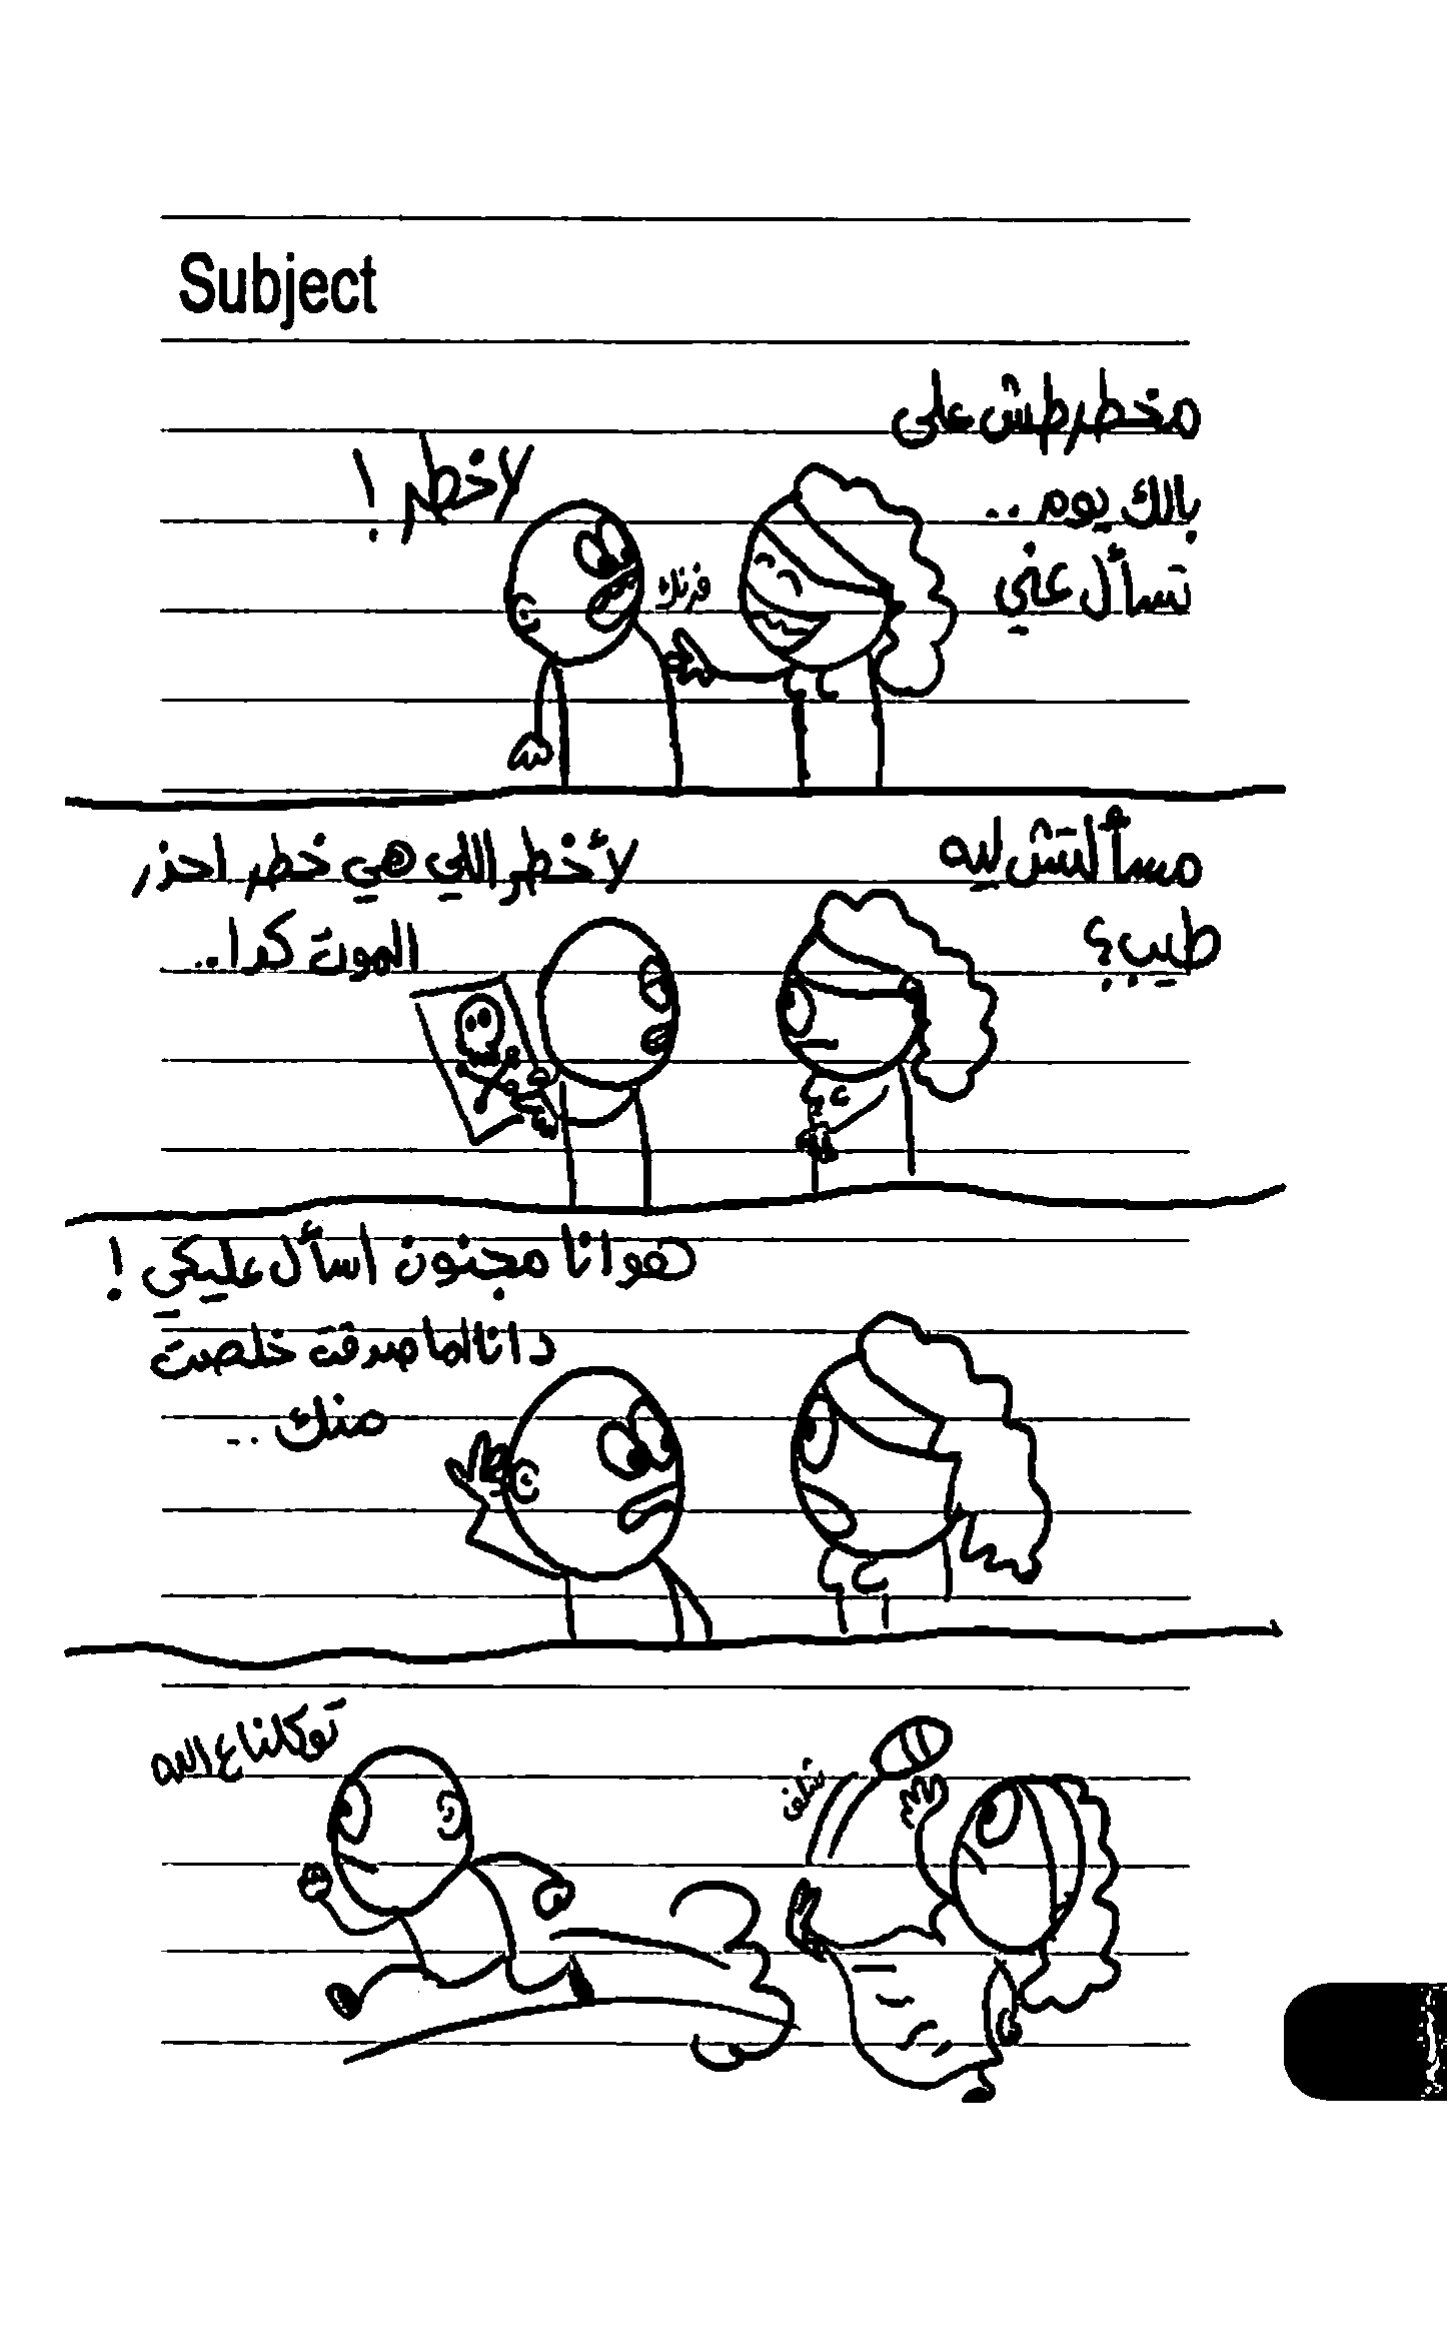 Subject
مخطرطش على
بالك يوم ..
تسأل عني
لا خطر !
فرنك
مسألتش ليه
طيب؟
لأ خطر اللي هي خطر احذر
الموت كدا ..
هو انا مجنون اسأل عليكي !
دانا لما صدقت خلصت
منك ..
توكلنا ع الله